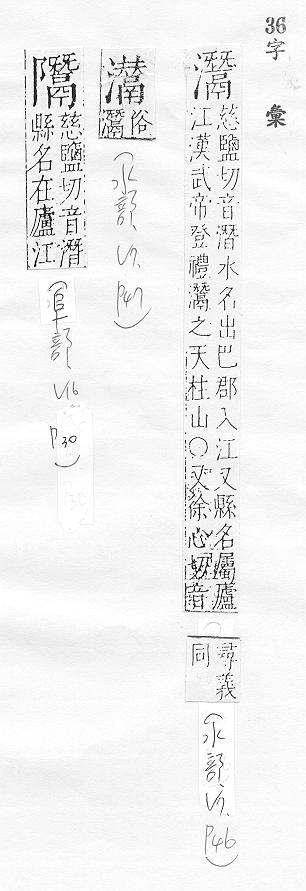 36
字彙
灊
慈鹽切音潛水名出巴郡入江又縣名屬廬
江漢武帝登禮灊之天柱山○又徐心切音
尋義
同
(水部,
P46)
俗
灊
(水部,
P47)
慈鹽切音潛
縣名在廬江
(阜部,
P30)